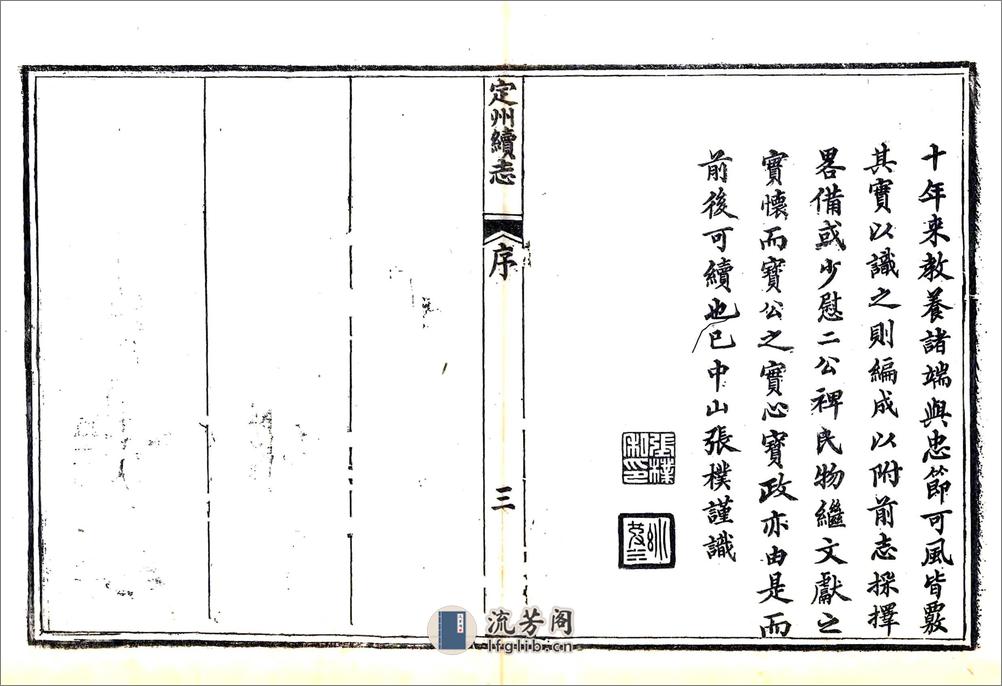 十年来教養諸端與忠節可風皆覈
其實以識之則編成以附前志採擇
畧備或少慰二公裨民物繼文獻之
實懷而寶公之實心實政亦由是而
前後可續也已中山張樸謹識
張樸
私印
定州續志
序
三
流芳阁
lfglib.cn